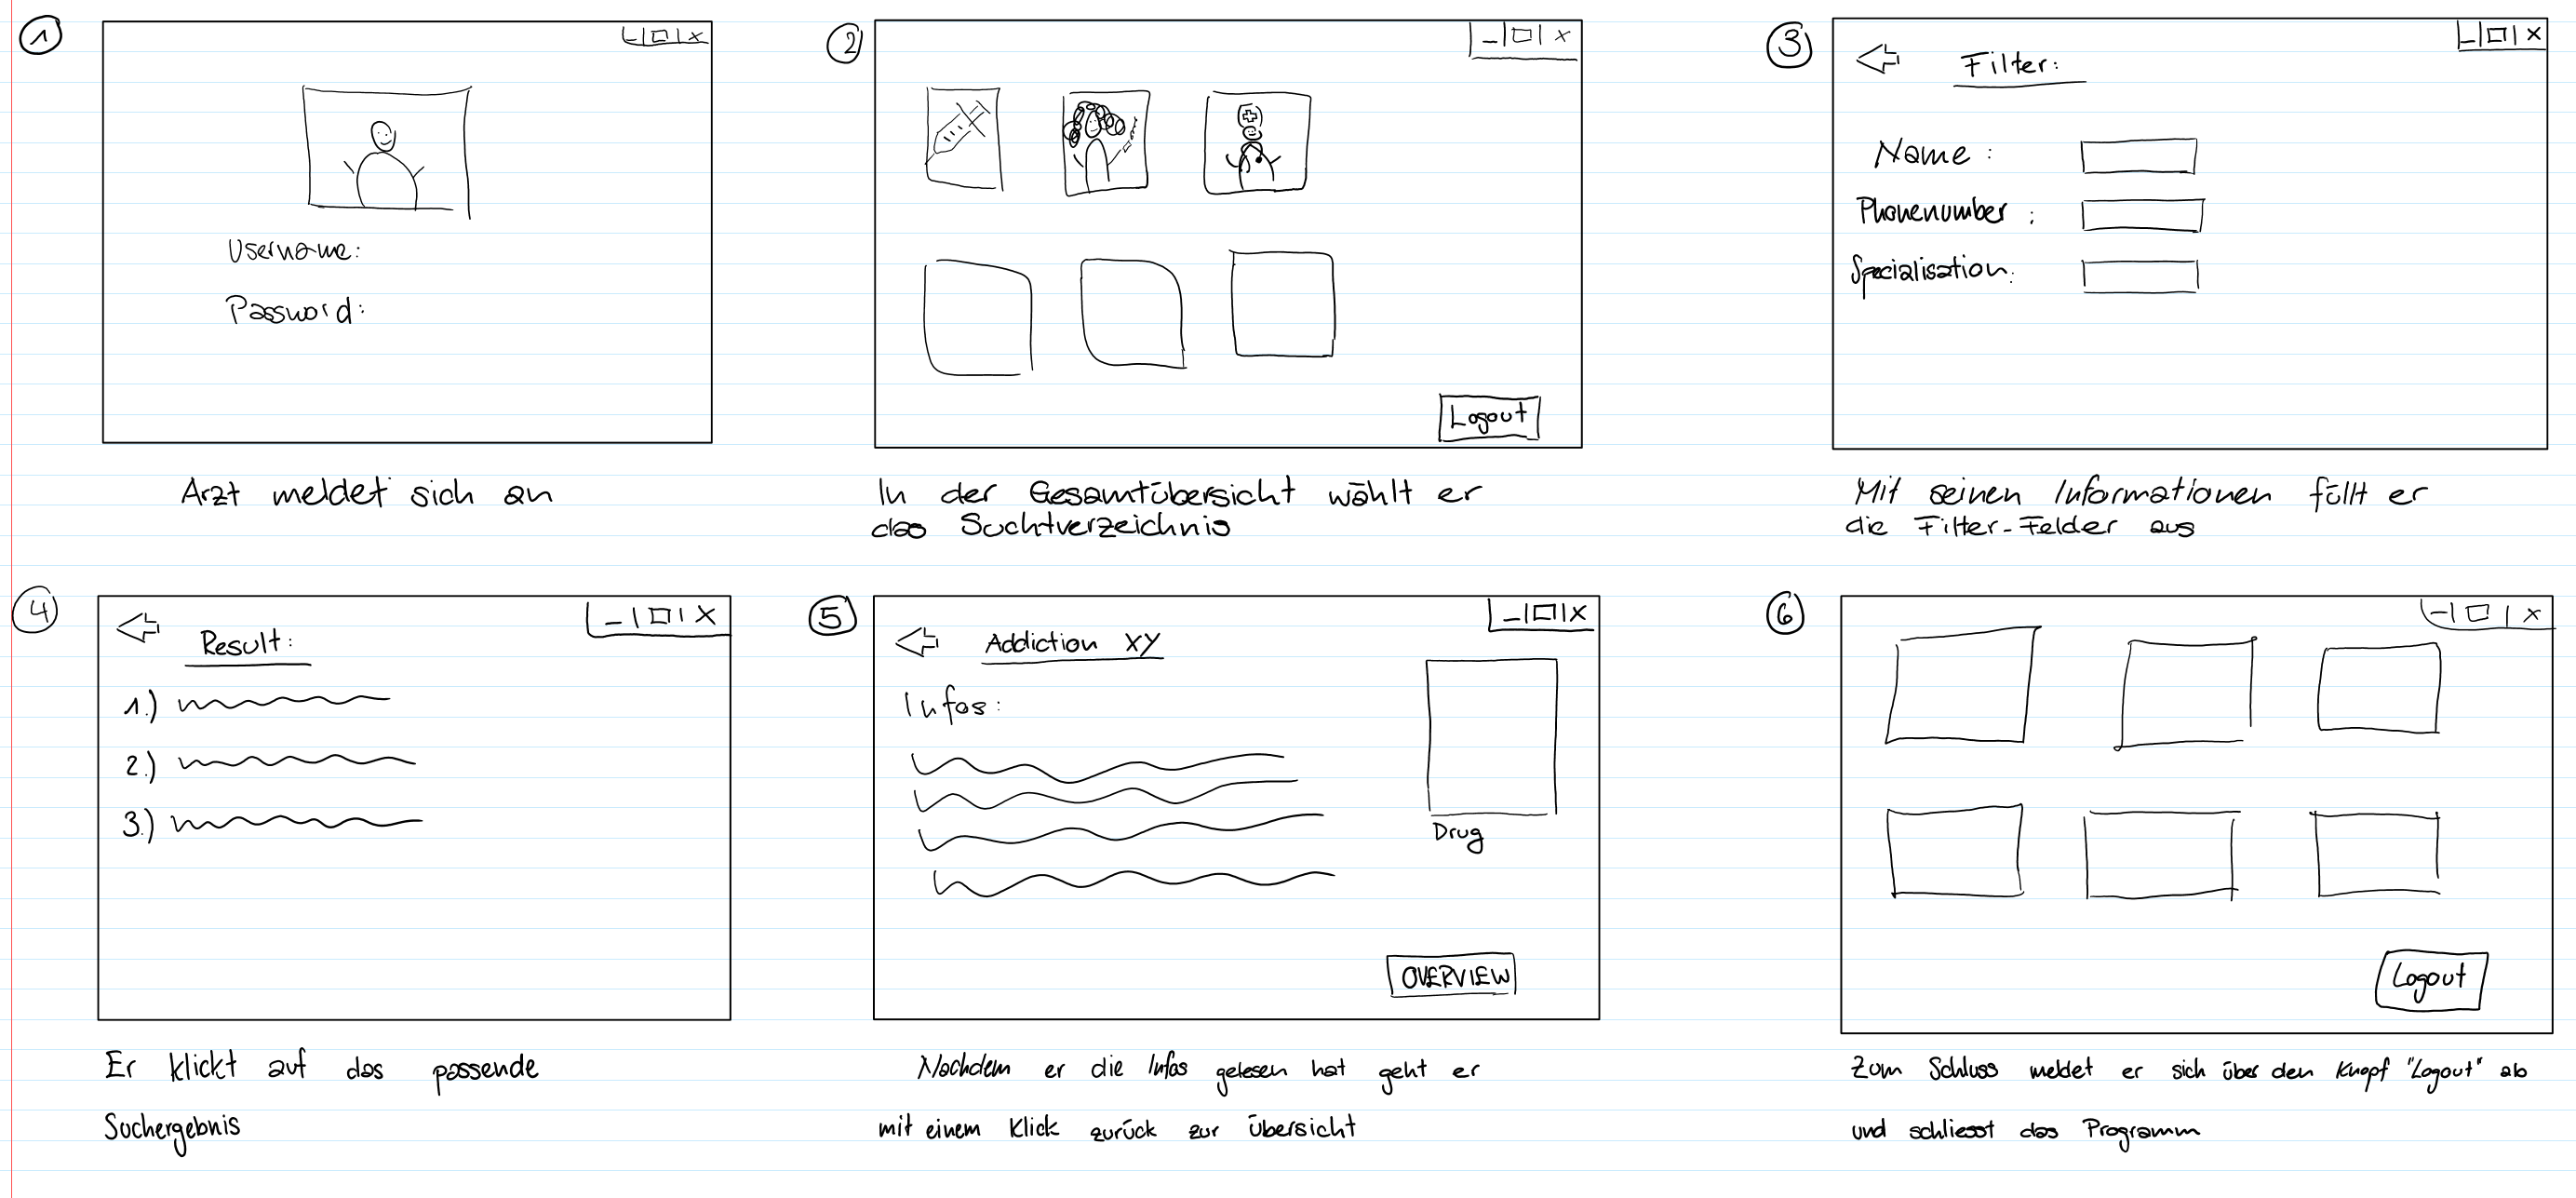 1
Username:
Password:
Arzt meldet sich an
2
Logout
In der Gesamtübersicht wählt er
das Suchtverzeichnis
3
Filter:
Name:
Phonenumber:
Specialisation:
Mit seinen Informationen füllt er
die Filter-Felder aus
4
Result:
1.)
2.)
3.)
Er klickt auf das passende
Suchergebnis
5
Addiction XY
Infos:
Drug
OVERVIEW
Nachdem er die Infos gelesen hat geht er
mit einem Klick zurück zur Übersicht
6
Logout
Zum Schluss meldet er sich über den Knopf "Logout" ab
und schliesst das Programm